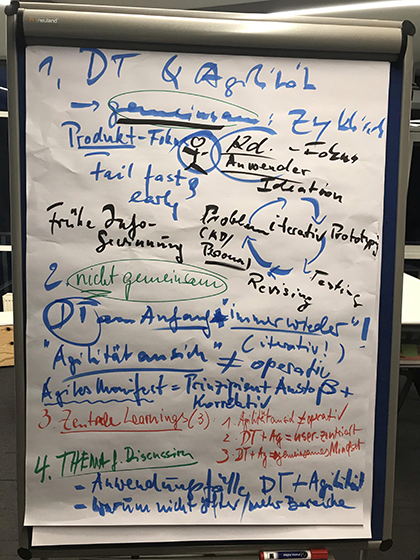 neuland
1, DT & Agilität
→ gemeinsam: Zyklisch
Produkt-Fokus
Kd. - Fokus
Anwender
fail fast &
early
Ideation
Frühe Info-
Gewinnung
Problem
iterativ
Prototyping
Testing
Revising
2. nicht gemeinsam
DT am Anfang "immer wieder"!
"Agilität an sich" (iterativ!)
≠ operativ
Agiles Manifest = Prinzipien Anstoß +
Korrektiv
3. Zentrale Learnings (3)
1. Agilität an sich ≠ operativ
2. DT + Ag = user-zentriert
3. DT + Ag = gemeinsames Mindset
4. THEMA f. Discussion
= Anwendungsfälle DT + Agilität
= Warum nicht öfter/mehr Bereiche